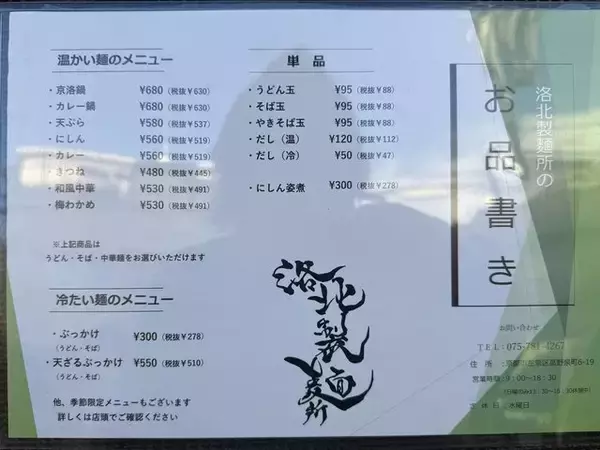 温かい麺のメニュー
・京洛鍋 ¥680(税抜￥630)
・カレー鍋 ¥680(税抜￥630)
・天ぷら ¥580(税抜￥537)
・にしん ¥560(税抜￥519)
・カレー ¥560(税抜￥519)
・きつね ¥480(税抜￥445)
・和風中華 ¥530(税抜￥491)
・梅わかめ ¥530(税抜￥491)
※上記商品は
うどん・そば・中華麺をお選びいただけます
冷たい麺のメニュー
・ぶっかけ ¥300(税抜￥278)
(うどん・そば)
・天ざるぶっかけ ¥550(税抜￥510)
(うどん・そば)
他、季節限定メニューもございます
詳しくは店頭でご確認ください
単品
・うどん玉 ¥95(税抜￥88)
・そば玉 ¥95(税抜￥88)
・やきそば玉 ¥95(税抜￥88)
・だし（温） ¥120(税抜￥112)
・だし（冷） ¥50(税抜￥47)
・にしん姿煮 ¥300(税抜￥278)
洛北製麺所
洛北製麺所の
お品書き
お問い合わせ
TEL：075-781-4267
住 所：京都市左京区高野泉町6-19
営業時間：9：00～18：30
定 休 日：水曜日